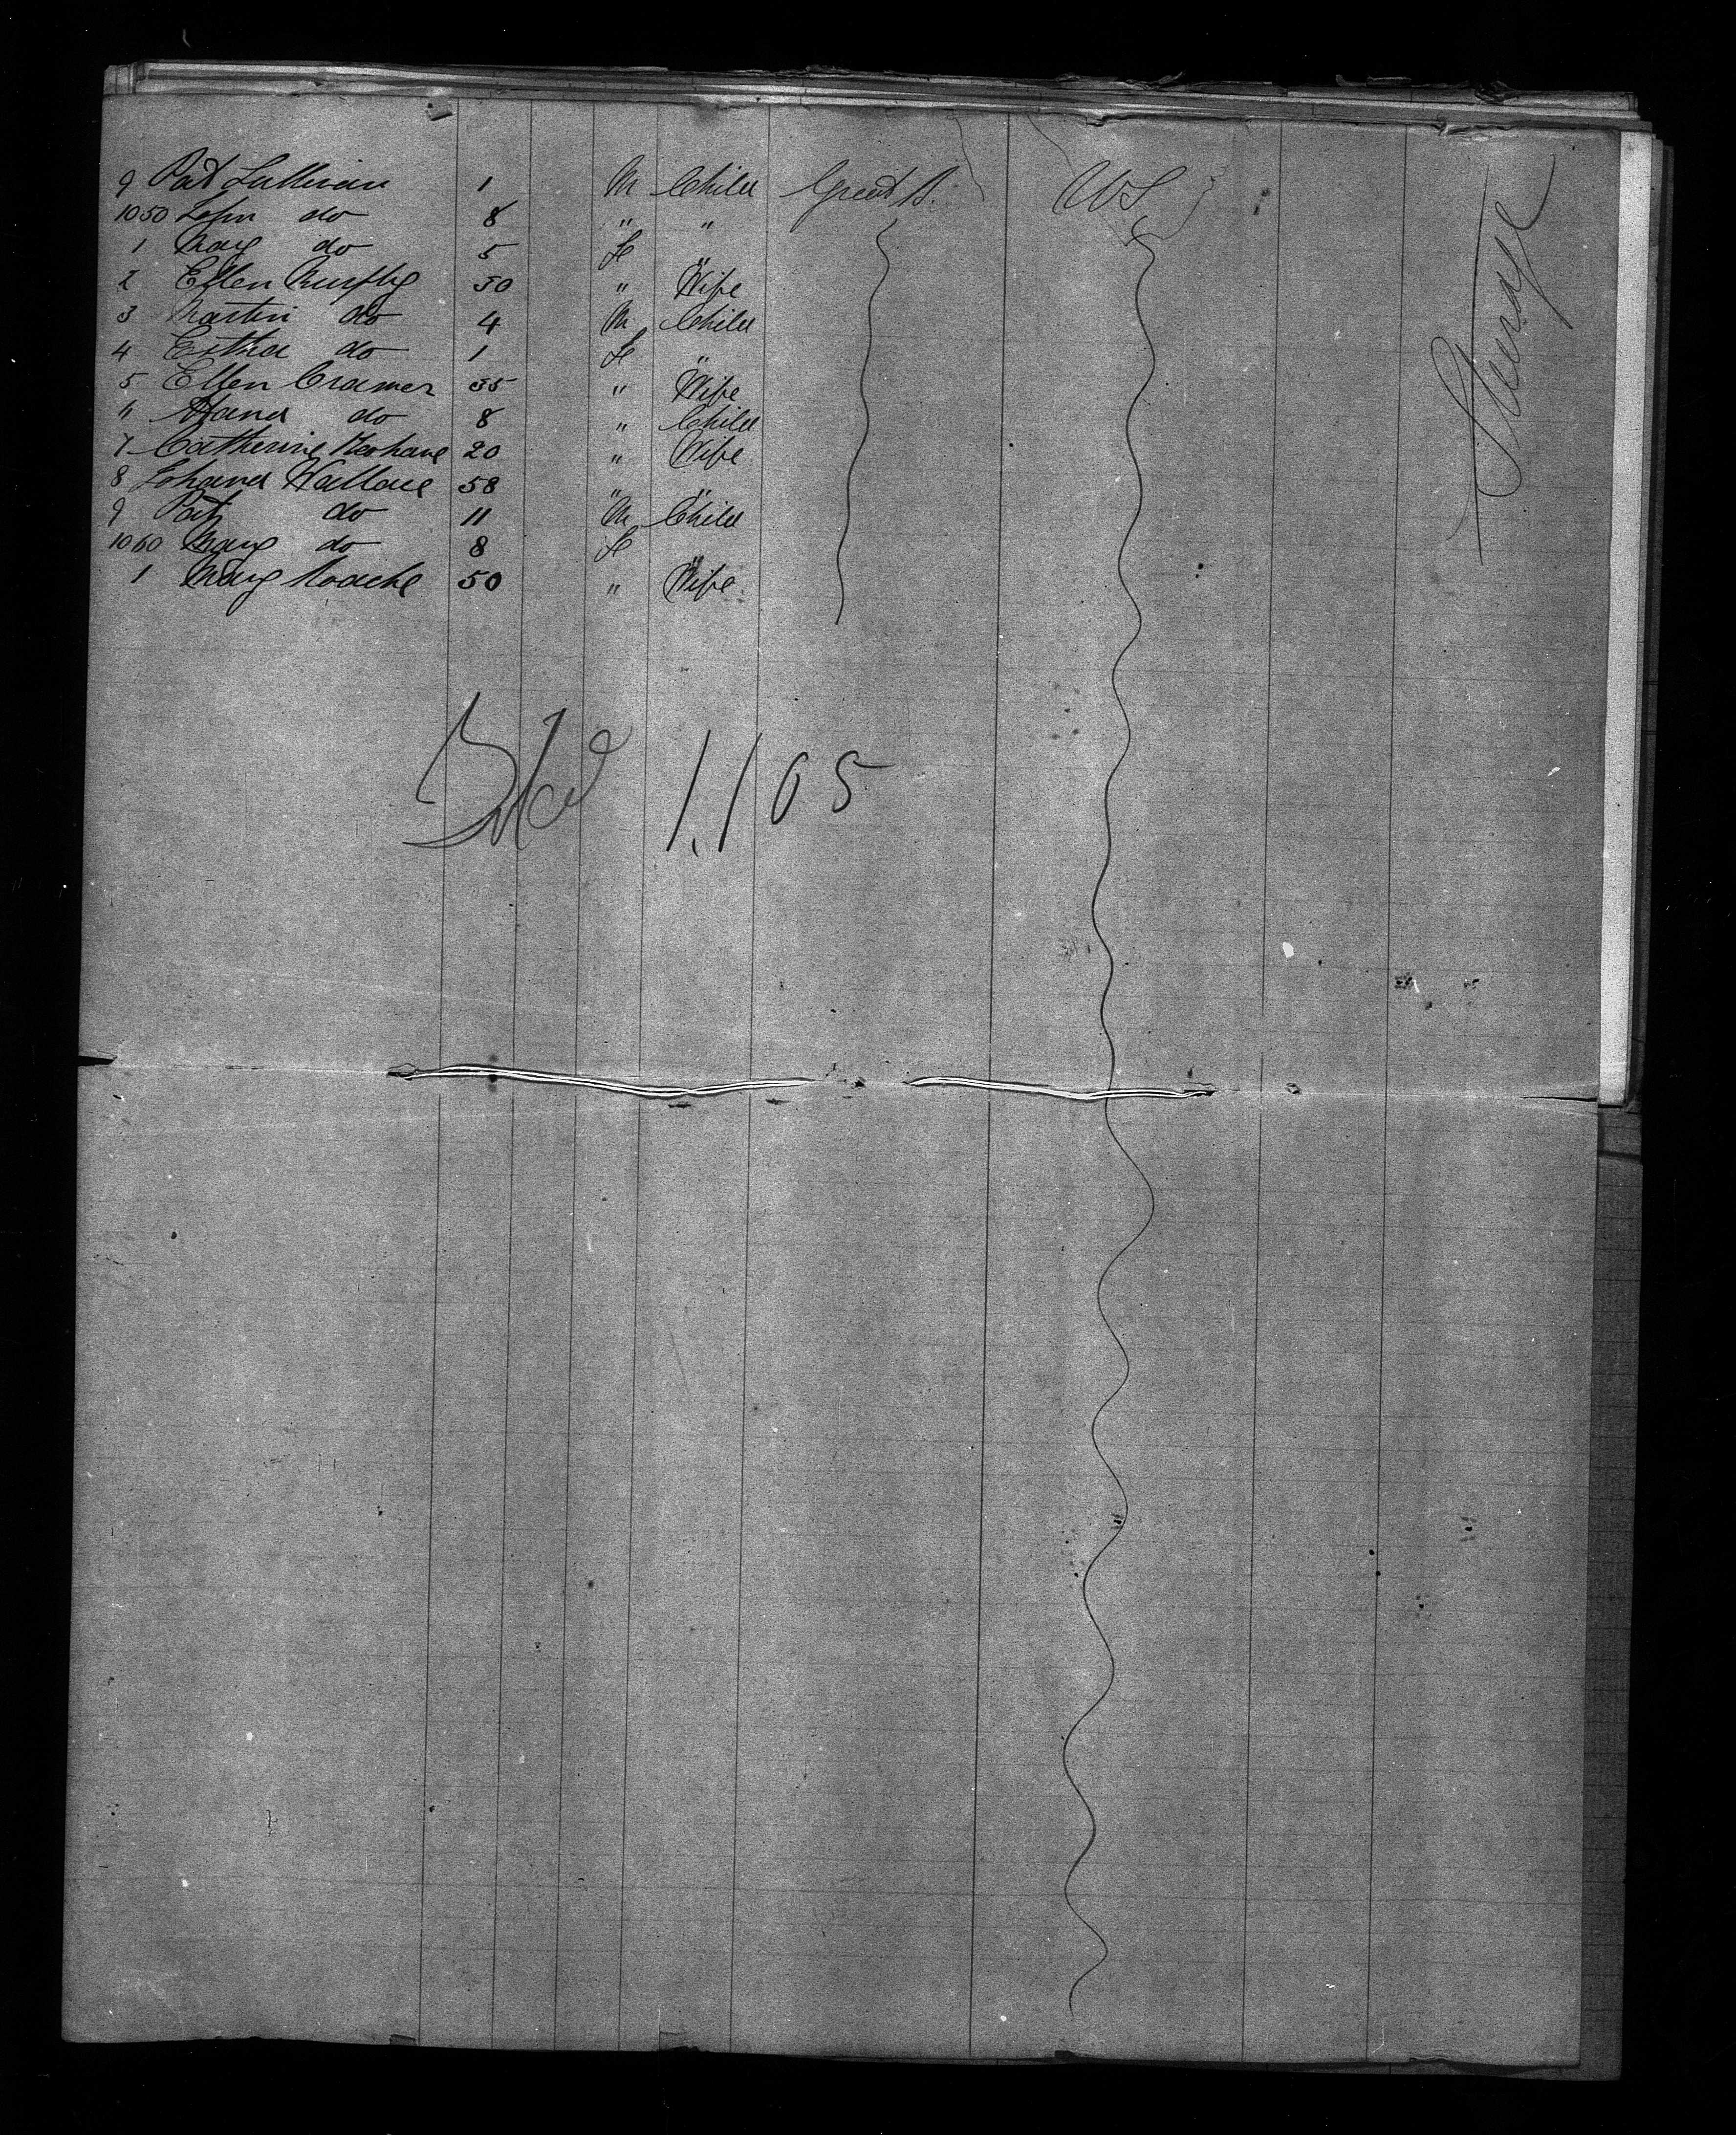 9 Pat Sullivan 1 M Child Great B. US
1050 John do 8 " "
1 Mary do 5 Fe "
2 Ellen Murphy 30 " Wife
3 Martin do 4 M Child
4 Esther do 1 Fe "
5 Ellen Cramer 35 " Wife
" Hana do 8 " Child
7 Catherine Meohane 20 " Wife
8 Johana Wallace 58 " "
9 Pat do 11 M Child
1060 Mary do 8 Fe "
1 Mary Roache 50 " Wife
Total 1,105
Steerage